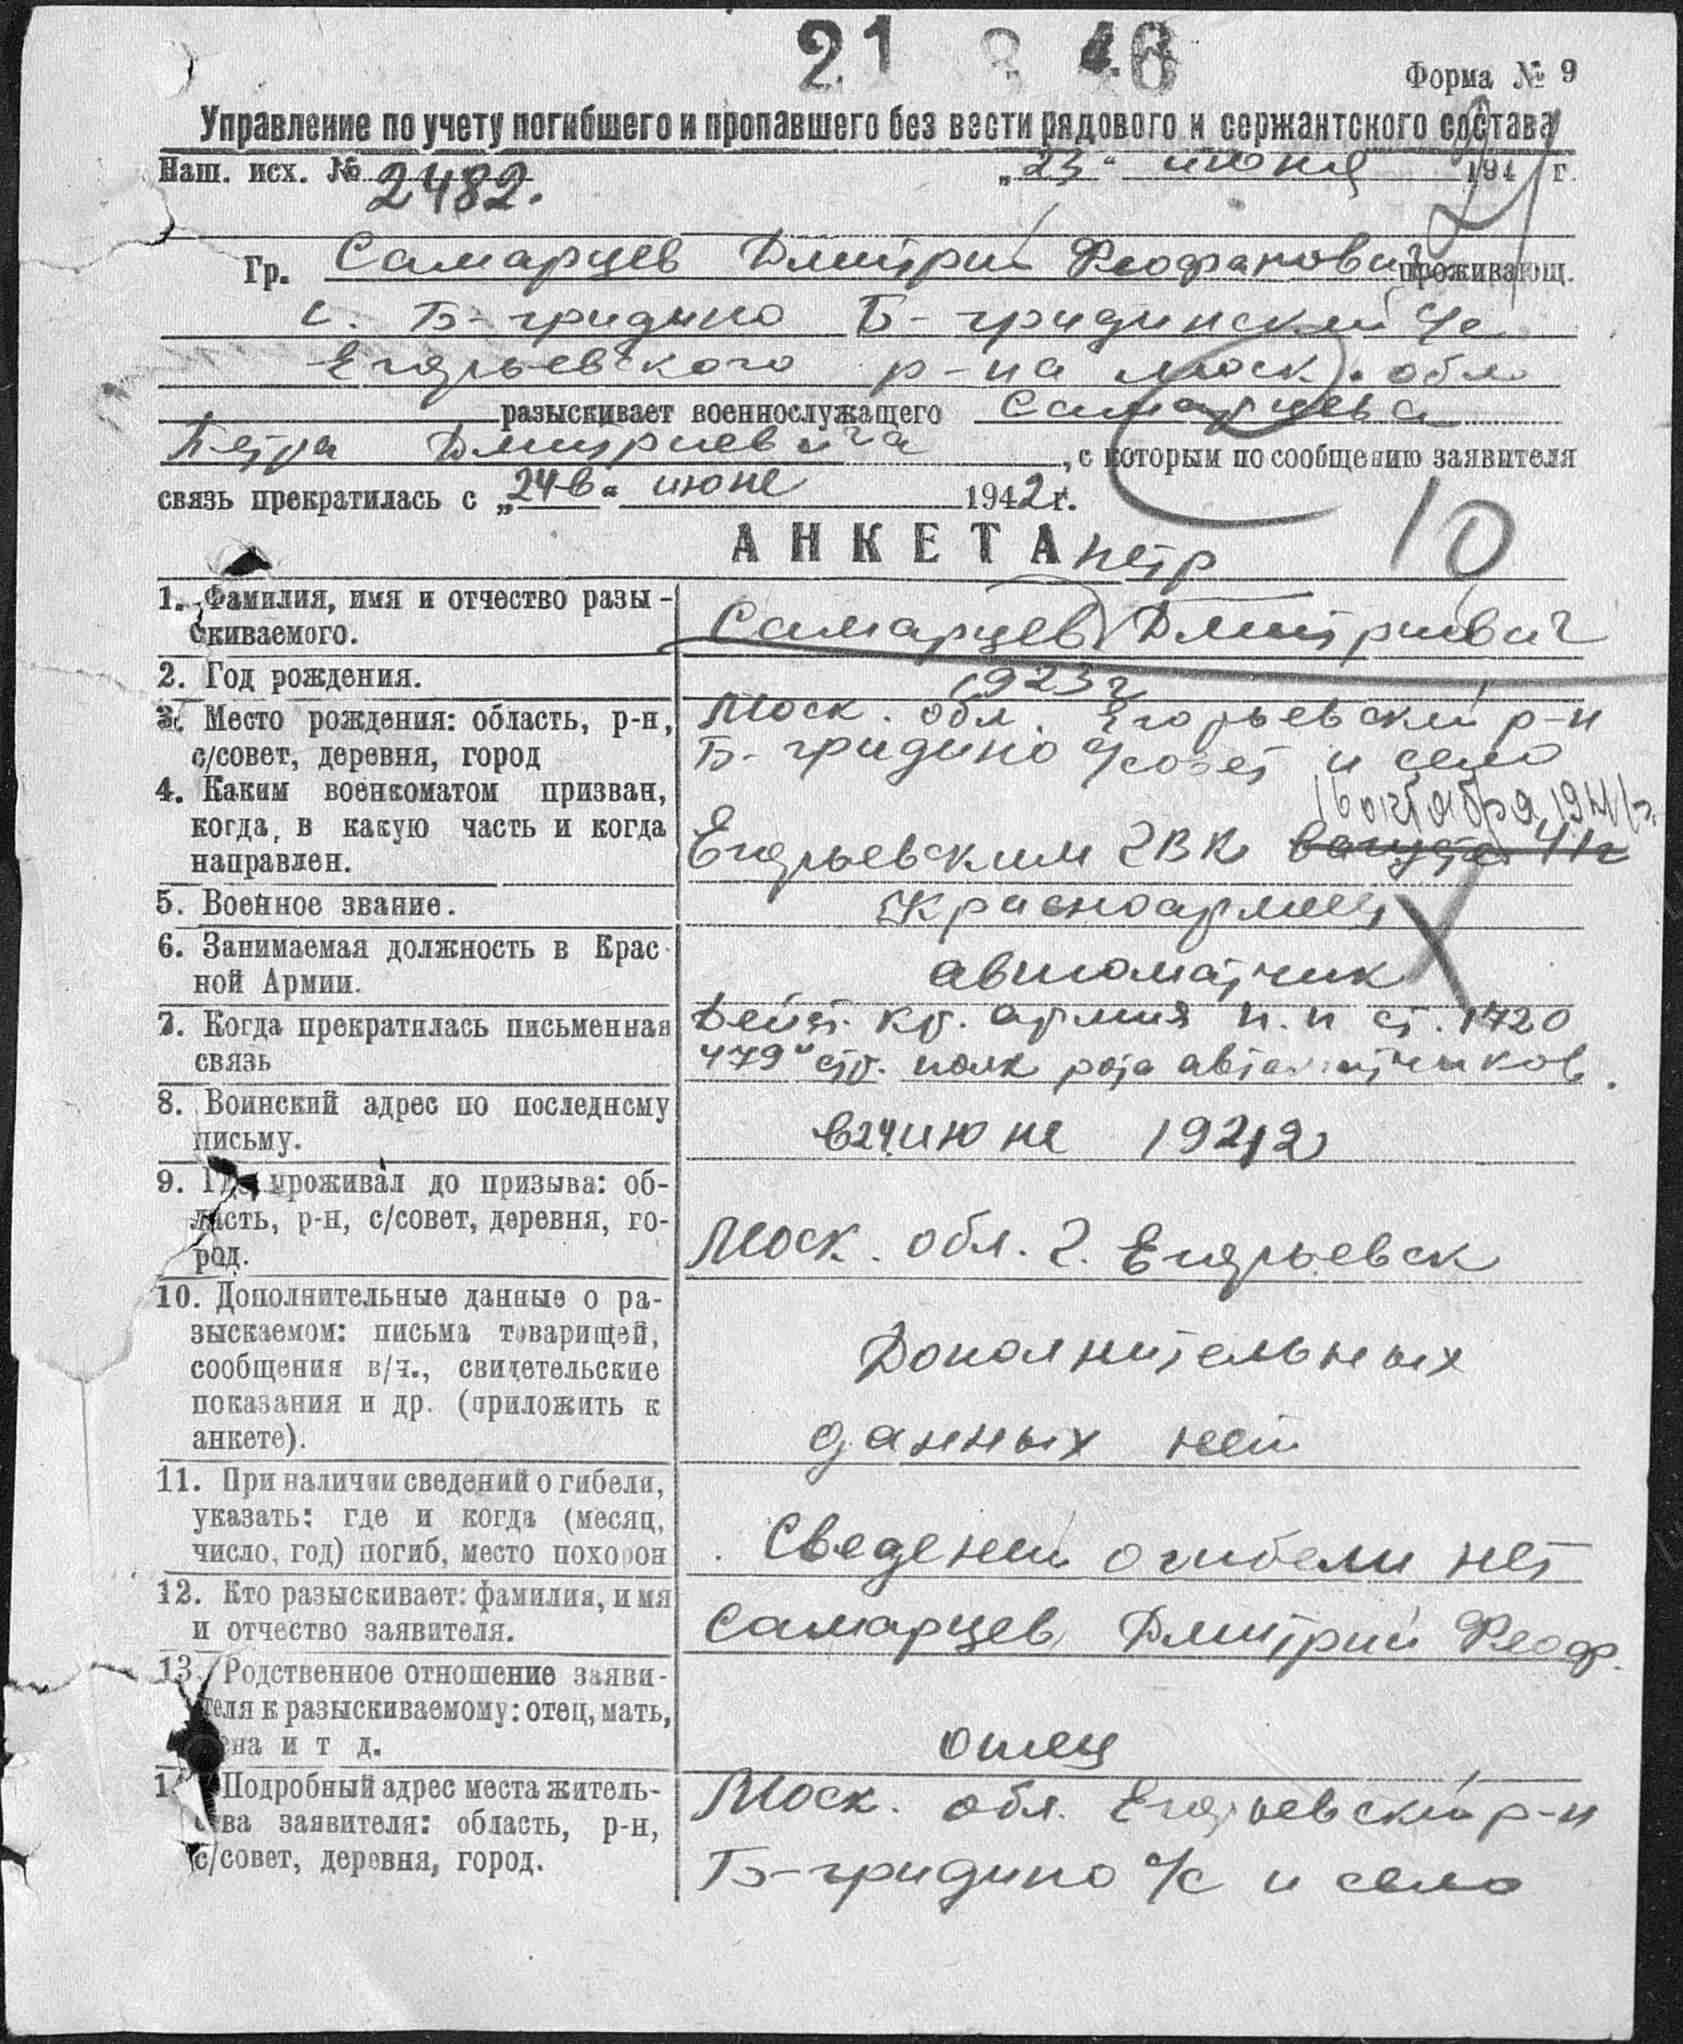 21 8 46
Форма № 9
Управление по учету погибшего и пропавшего без вести рядового и сержантского состава
Наш. исх. № 2482. „23“ июня 194 г.
Гр. Самарцев Дмитрий Феофанович проживающ.
с. Б-гридино Б-гридинский с/с
Егорьевского р-на моск. обл.
разыскивает военнослужащего Самарцева
Петра Дмитриевича, с которым по сообщению заявителя
связь прекратилась с „24-в“ июне 1942 г.
10
АНКЕТА
Петр
1. Фамилия, имя и отчество разы-
скиваемого.
Самарцев Дмитриевич
2. Год рождения.
1923 г
3. Место рождения: область, р-н,
с/совет, деревня, город
Моск. обл. Егорьевский р-н
Б-гридино с/совет и село
4. Каким военкоматом призван,
когда, в какую часть и когда
направлен.
16 октября 1941 г.
Егорьевским ГВК в августе 41 г
5. Военное звание.
Красноармеец
6. Занимаемая должность в Крас-
ной Армии.
автоматчик
7. Когда прекратилась письменная
связь
Дейст. кр. армия п. п ст. 1720
479 стр. полк рота автоматчиков.
8. Воинский адрес по последнему
письму.
в 24 июне 1942
9. Где проживал до призыва: об-
ласть, р-н, с/совет, деревня, го-
род.
Моск. обл. г. Егорьевск
10. Дополнительные данные о ра-
зыскаемом: письма товарищей,
сообщения в/ч., свидетельские
показания и др. (приложить к
анкете).
Дополнительных
данных нет
11. При наличии сведений о гибели,
указать: где и когда (месяц,
число, год) погиб, место похорон
Сведений о гибели нет
12. Кто разыскивает: фамилия, имя
и отчество заявителя.
Самарцев Дмитрий Феоф.
13. Родственное отношение заяви-
теля к разыскиваемому: отец, мать,
ена и т д.
отец
1 Подробный адрес места житель-
ства заявителя: область, р-н,
с/совет, деревня, город.
Моск. обл. Егорьевский р-н
Б-гридино с/с и село